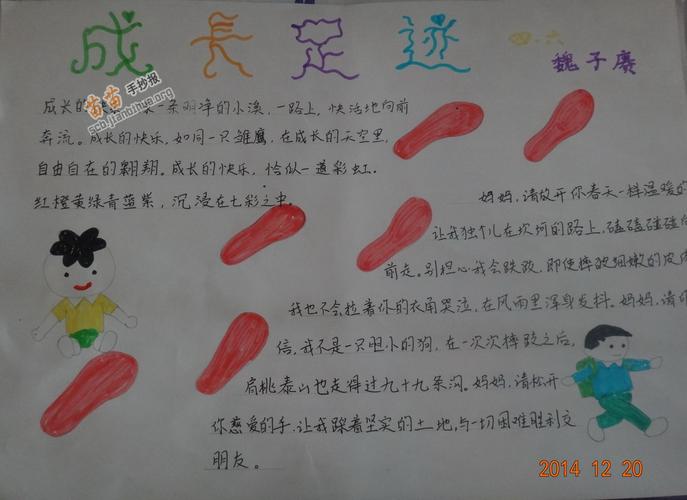 成长足迹
四.六
魏子赓
成长的快乐 一条明净的小溪,一路上,快活地向前
奔流。成长的快乐,如同一只雏鹰,在成长的天空里,
自由自在的翱翔。成长的快乐,恰似一道彩虹.
红橙黄绿青蓝紫,沉浸在七彩之中.
妈妈,请放开你春天一样温暖的
让我独个儿在坎坷的路上,磕磕碰碰向
前走。别担心我会跌跤,即使摔破细嫩的皮
我也不会拉着你的衣角哭泣,在风雨里浑身发抖。妈妈,请你
信,我不是一只胆小的狗,在一次次摔跤之后,
肩挑泰山也走得过九十九条沟。妈妈,请松开
你慈爱的手,让我踩着坚实的土地,与一切困难胜利交
朋友。
苗苗手抄报
scb.jianbihua.org
2014 12 20